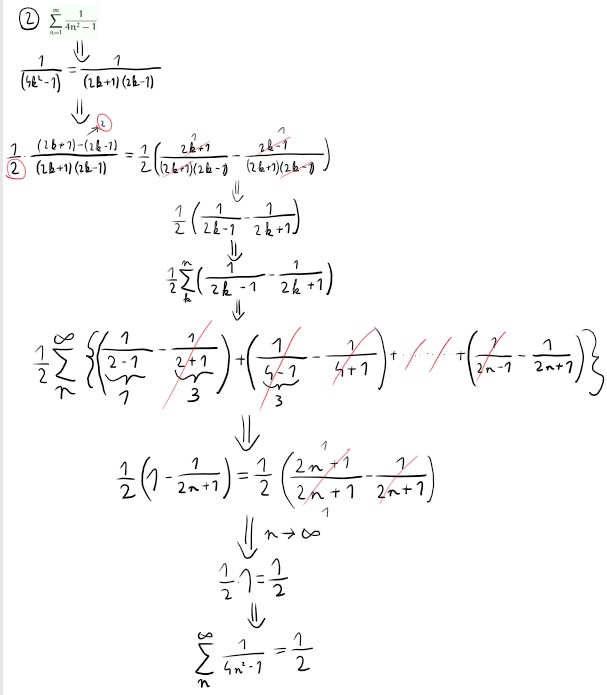 ② ∑_{n=1}^{∞} 1/(4n² − 1)
⇓
1/(4k²-1) = 1/((2k+1)(2k-1))
⇓
1/2 · ((2k+1)-(2k-1))/((2k+1)(2k-1)) → 2 = 1/2 ( (2k+1)/((2k+1)(2k-1)) - (2k-1)/((2k+1)(2k-1)) ) 1 1
⇓
1/2 ( 1/(2k-1) - 1/(2k+1) )
⇓
1/2 ∑_{k}^{n} ( 1/(2k-1) - 1/(2k+1) )
⇓
1/2 ∑_{n}^{∞} { ( 1/(2-1) - 1/(2+1) ) + ( 1/(4-1) - 1/(4+1) ) + ...... + ( 1/(2n-1) - 1/(2n+1) ) }
1 3 3
⇓
1/2 ( 1 - 1/(2n+1) ) = 1/2 ( (2n+1)/(2n+1) - 1/(2n+1) ) 1 1
⇓ n→∞
1/2 · 1 = 1/2
⇓
∑_{n}^{∞} 1/(4n²-1) = 1/2